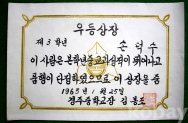 우등상장
제3학년
손덕수
이 사람은 본학년중 교과성적이 뛰어나고
품행이 단정하였으므로 이 상장을 줌
1965년 1월 25일
경주중학교장 김홍